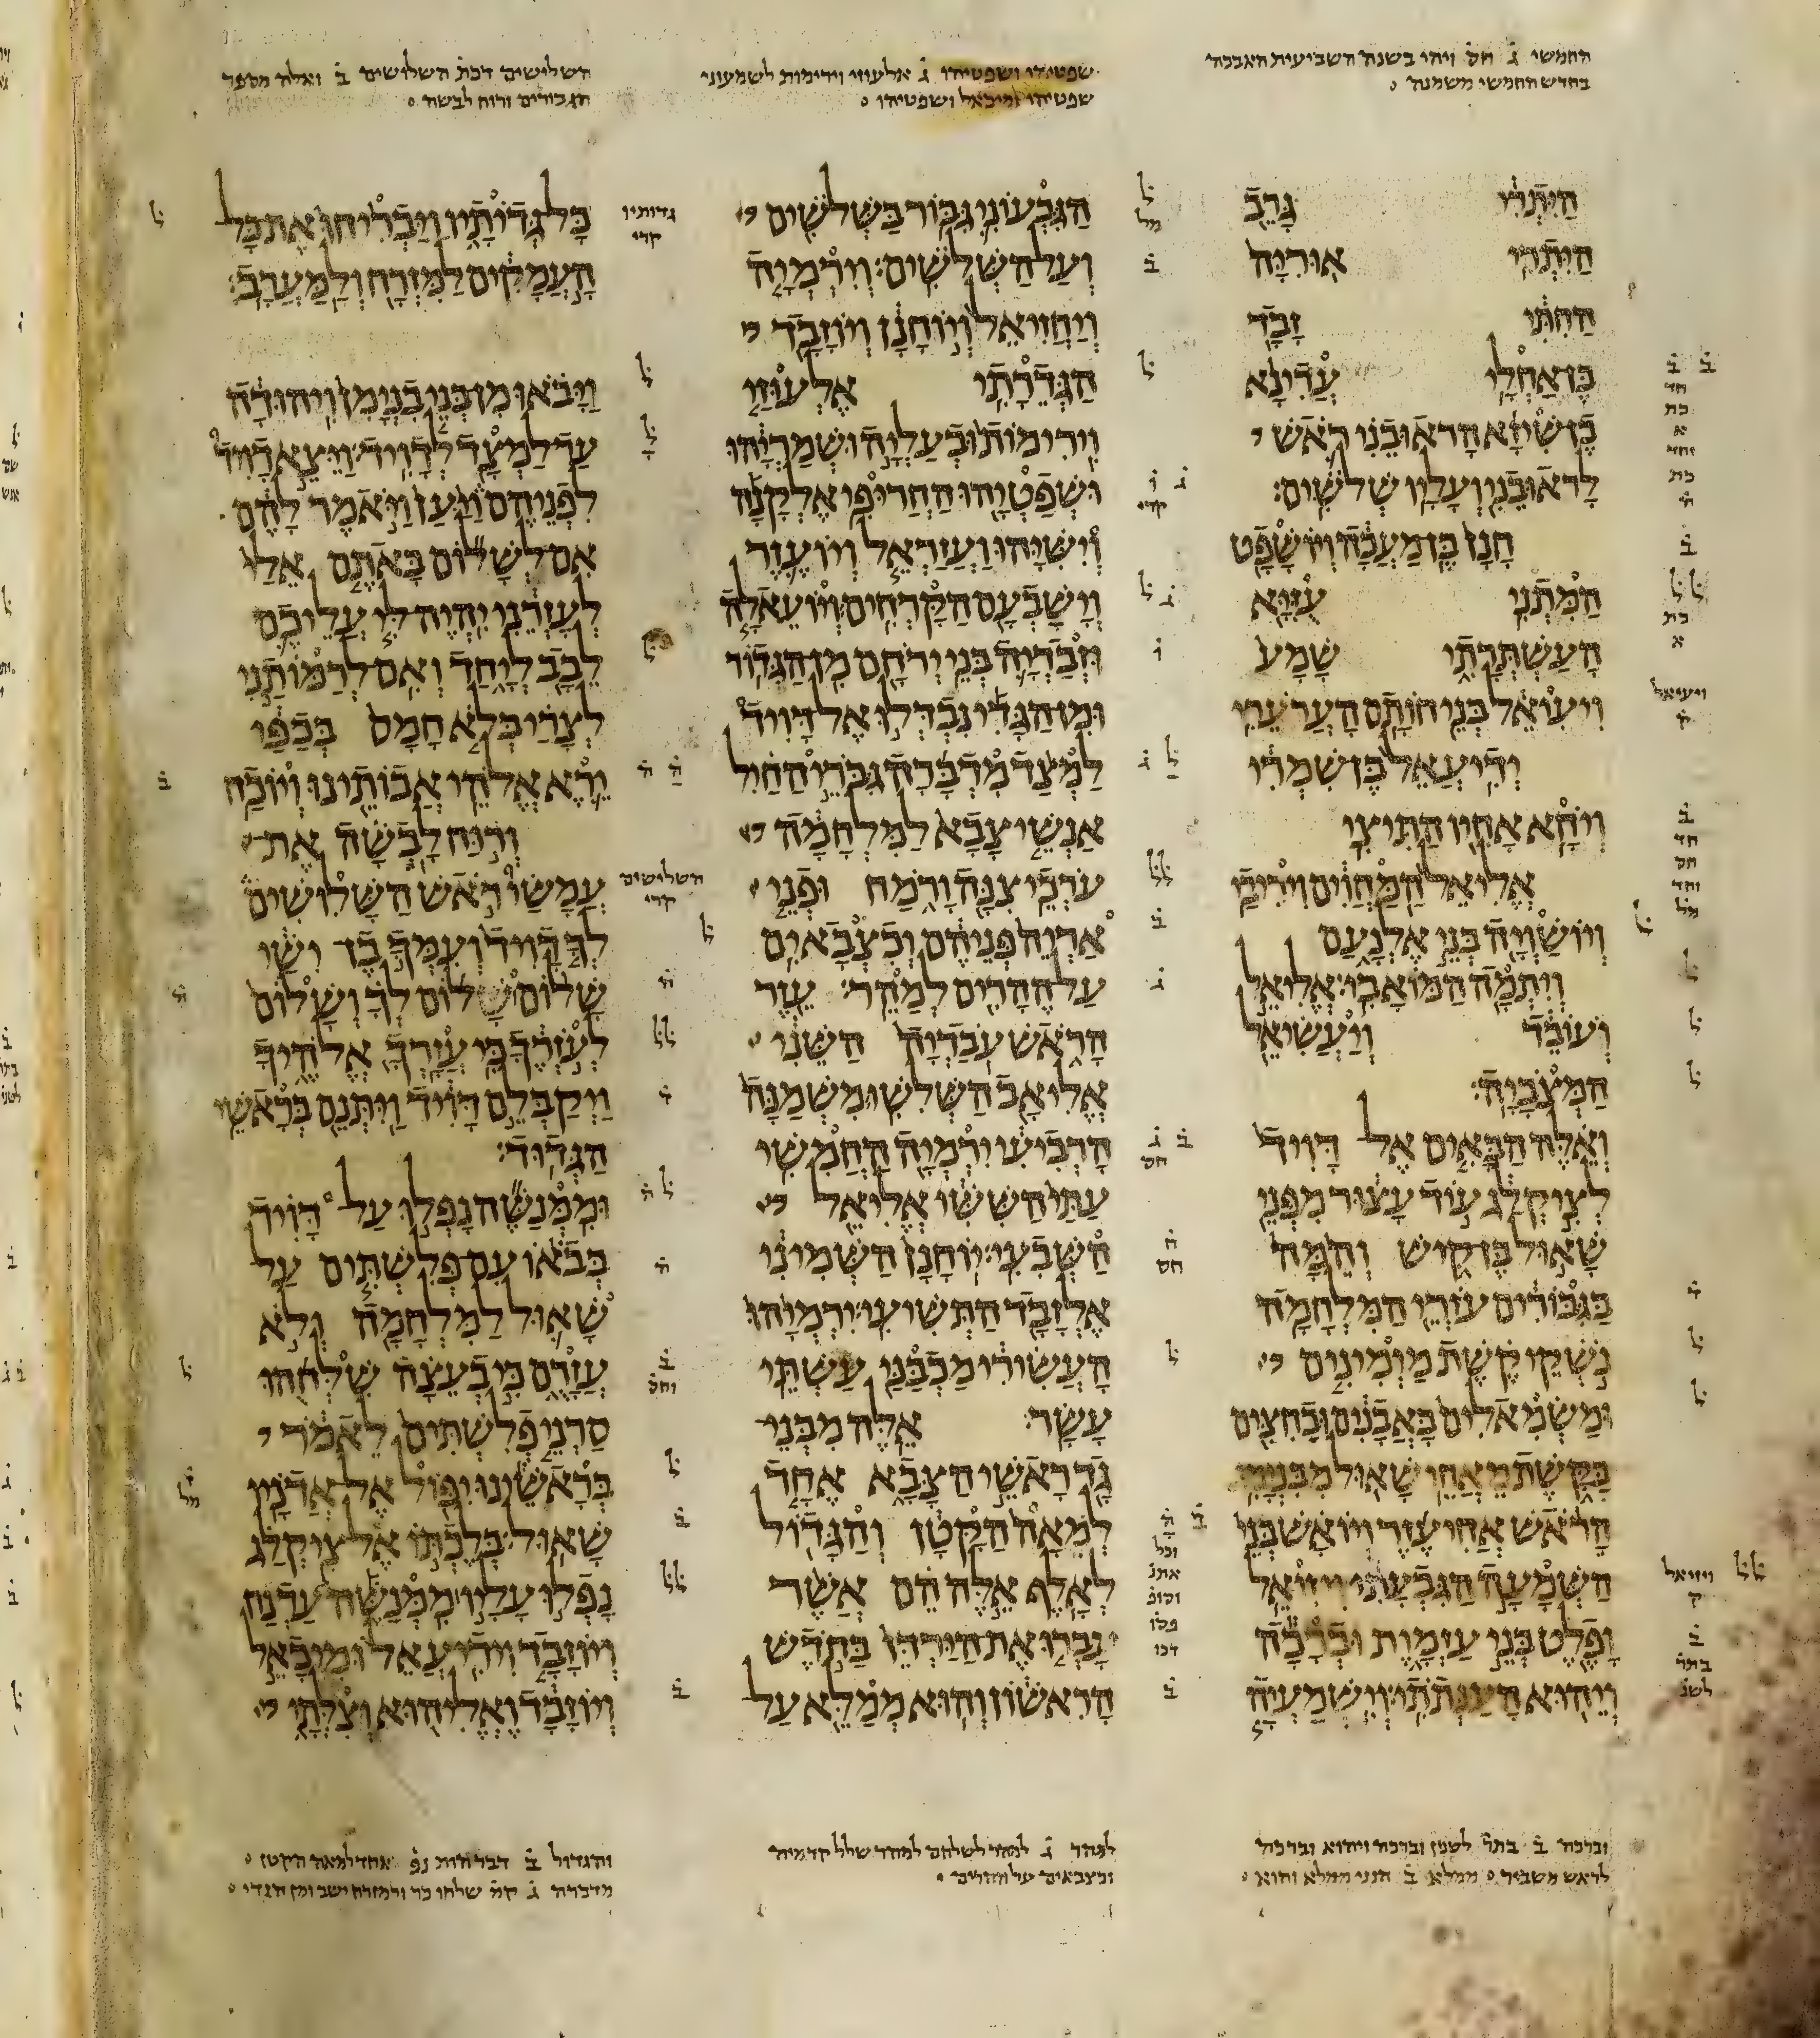 החמשי ג̇ חס̇ ויהי בשנה השביעית
בחדש החמשי משמנה
שפטיהו ושפטיהו ג̇ אלעוזי וירימות לשמעוני
שפטיהו ומיכאל ושפטיהו
השלישים דכת̇ השלושים ב̇ ואלה מספר
הגבורים ורוח לבשה
היתרי גרב
היתרי אוריה
החתי זבד
בן אחלי עדינא
בן שיזא הראובני ראש
לראובני ועליו שלשים׃
חנן בן מעכה ויושפט
המתני עזיא
העשתרתי שמע
ויעואל בני חותם הערערי
ידיעאל בן שמרי
ויחא אחיו התיצי
אליאל המחוים ויריבי
ויושויה בני אלנעם
ויתמה המואבי׃ אליאל
ועובד ויעשיאל
המצביה׃
ואלה הבאים אל דויד
לציקלג עוד עצור מפני
שאול בן קיש והמה
בגבורים עזרי המלחמה
נשקי קשת מימינים
ומשמאלים באבנים ובחצים
בקשת מאחי שאול מבנימן
הראש אחיעזר ויואש בני
השמעה הגבעתי ויזואל
ופלט בני עזמות וברכה
ויהוא הענתתי׃ וישמעיה
ויעיאל
ק̇
ויזיאל
ק
הגבעוני גבור בשלשים
ועל השלשים׃ וירמיה
ויחזיאל ויוחנן ויוזבד
הגדרתי אלעוזי
וירימות ובעליה ושמריהו
ושפטיהו החרופי אלקנה
וישיהו ועזראל ויועזר
וישבעם הקרחים ויועאלה
וזבדיה בני ירחם מן הגדור
ומן הגדי נבדלו אל דויד
למצד מדברה גברי החיל
אנשי צבא למלחמה
ערכי צנה ורמח ופני
אריה פניהם וכצבאים
על ההרים למהר׃ עזר
הראש עבדיה השני
אליאב השלשי׃ משמנה
הרביעי ירמיה החמשי
עתי הששי אליאל
השבעי׃ יוחנן השמיני
אלזבד התשיעי׃ ירמיהו
העשירי מכבני עשתי
עשר׃ אלה מבני
גד ראשי הצבא אחד
למאה הקטן והגדול
לאלף אלה הם אשר
עברו את הירדן בחדש
הראשון והוא ממלא על
גדותיו
קרי
השלישים
קרי
כל גדיתיו ויבריחו את כל
העמקים למזרח ולמערב׃
ויבאו מן בני בנימן ויהודה
עד למצד לדויד׃ ויצא דויד
לפניהם ויען ויאמר להם
אם לשלום באתם אלי
לעזרני יהיה לי עליכם
לבב ליחד ואם לרמותני
לצרי בלא חמס בכפי
ירא אלהי אבותינו ויוכח
ורוח לבשה את
עמשי ראש השלושים
לך דויד ועמך בן ישי
שלום שלום לך ושלום
לעזרך כי עזרך אלהיך
ויקבלם דויד ויתנם בראשי
הגדוד׃
וממנשה נפלו על דויד
בבאו עם פלשתים על
שאול למלחמה ולא
עזרם כי בעצה שלחהו
סרני פלשתים לאמר
בראשינו יפול אל אדניו
שאול׃ בלכתו אל ציקלג
נפלו עליו ממנשה עדנח
ויוזבד וידיעאל ומיכאל
ויוזבד ואליהוא וצלתי
וברכה ב̇ בתר̇ לשנין וברכה ויהוא וברכה
לראש משביר ממלא ב̇ הנני ממלא והוא
למהר ג̇ למהר לשלחם למהר שלל קדמיה
וכצבאים על ההרים
והגדול ב̇ דבר הות נפ̇ אחד למאה הקטן
מדברה ג̇ שלחו כר ולמזרח ישב ומן הגדי